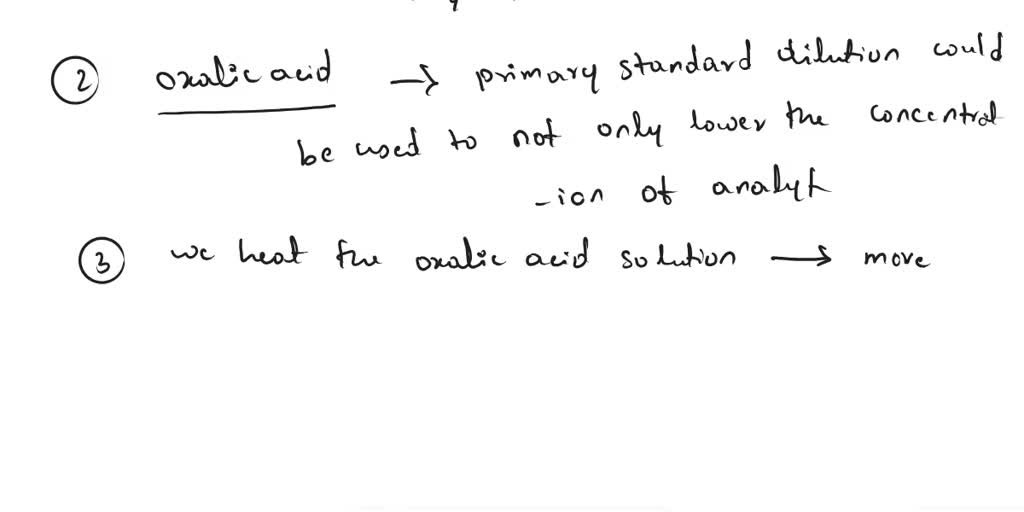 ② oxalic acid → primary standard dilution could
be used to not only lower the concentrat
-ion of analyt
③ we heat the oxalic acid solution → move